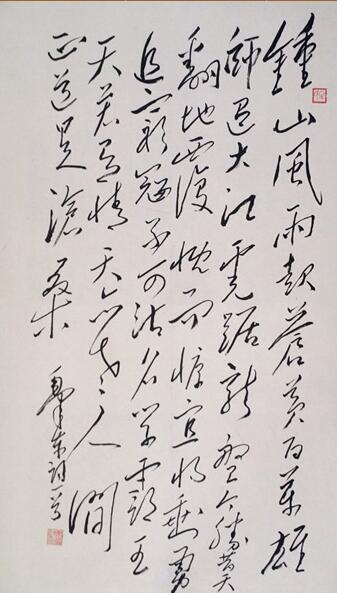 鍾山風雨起蒼黄百萬雄
師過大江虎踞龍盤今勝昔天
翻地覆慨而慷宜將剩勇
追窮寇不可沽名學霸王
天若有情天亦老人間
正道是滄桑
毛澤東詩一首